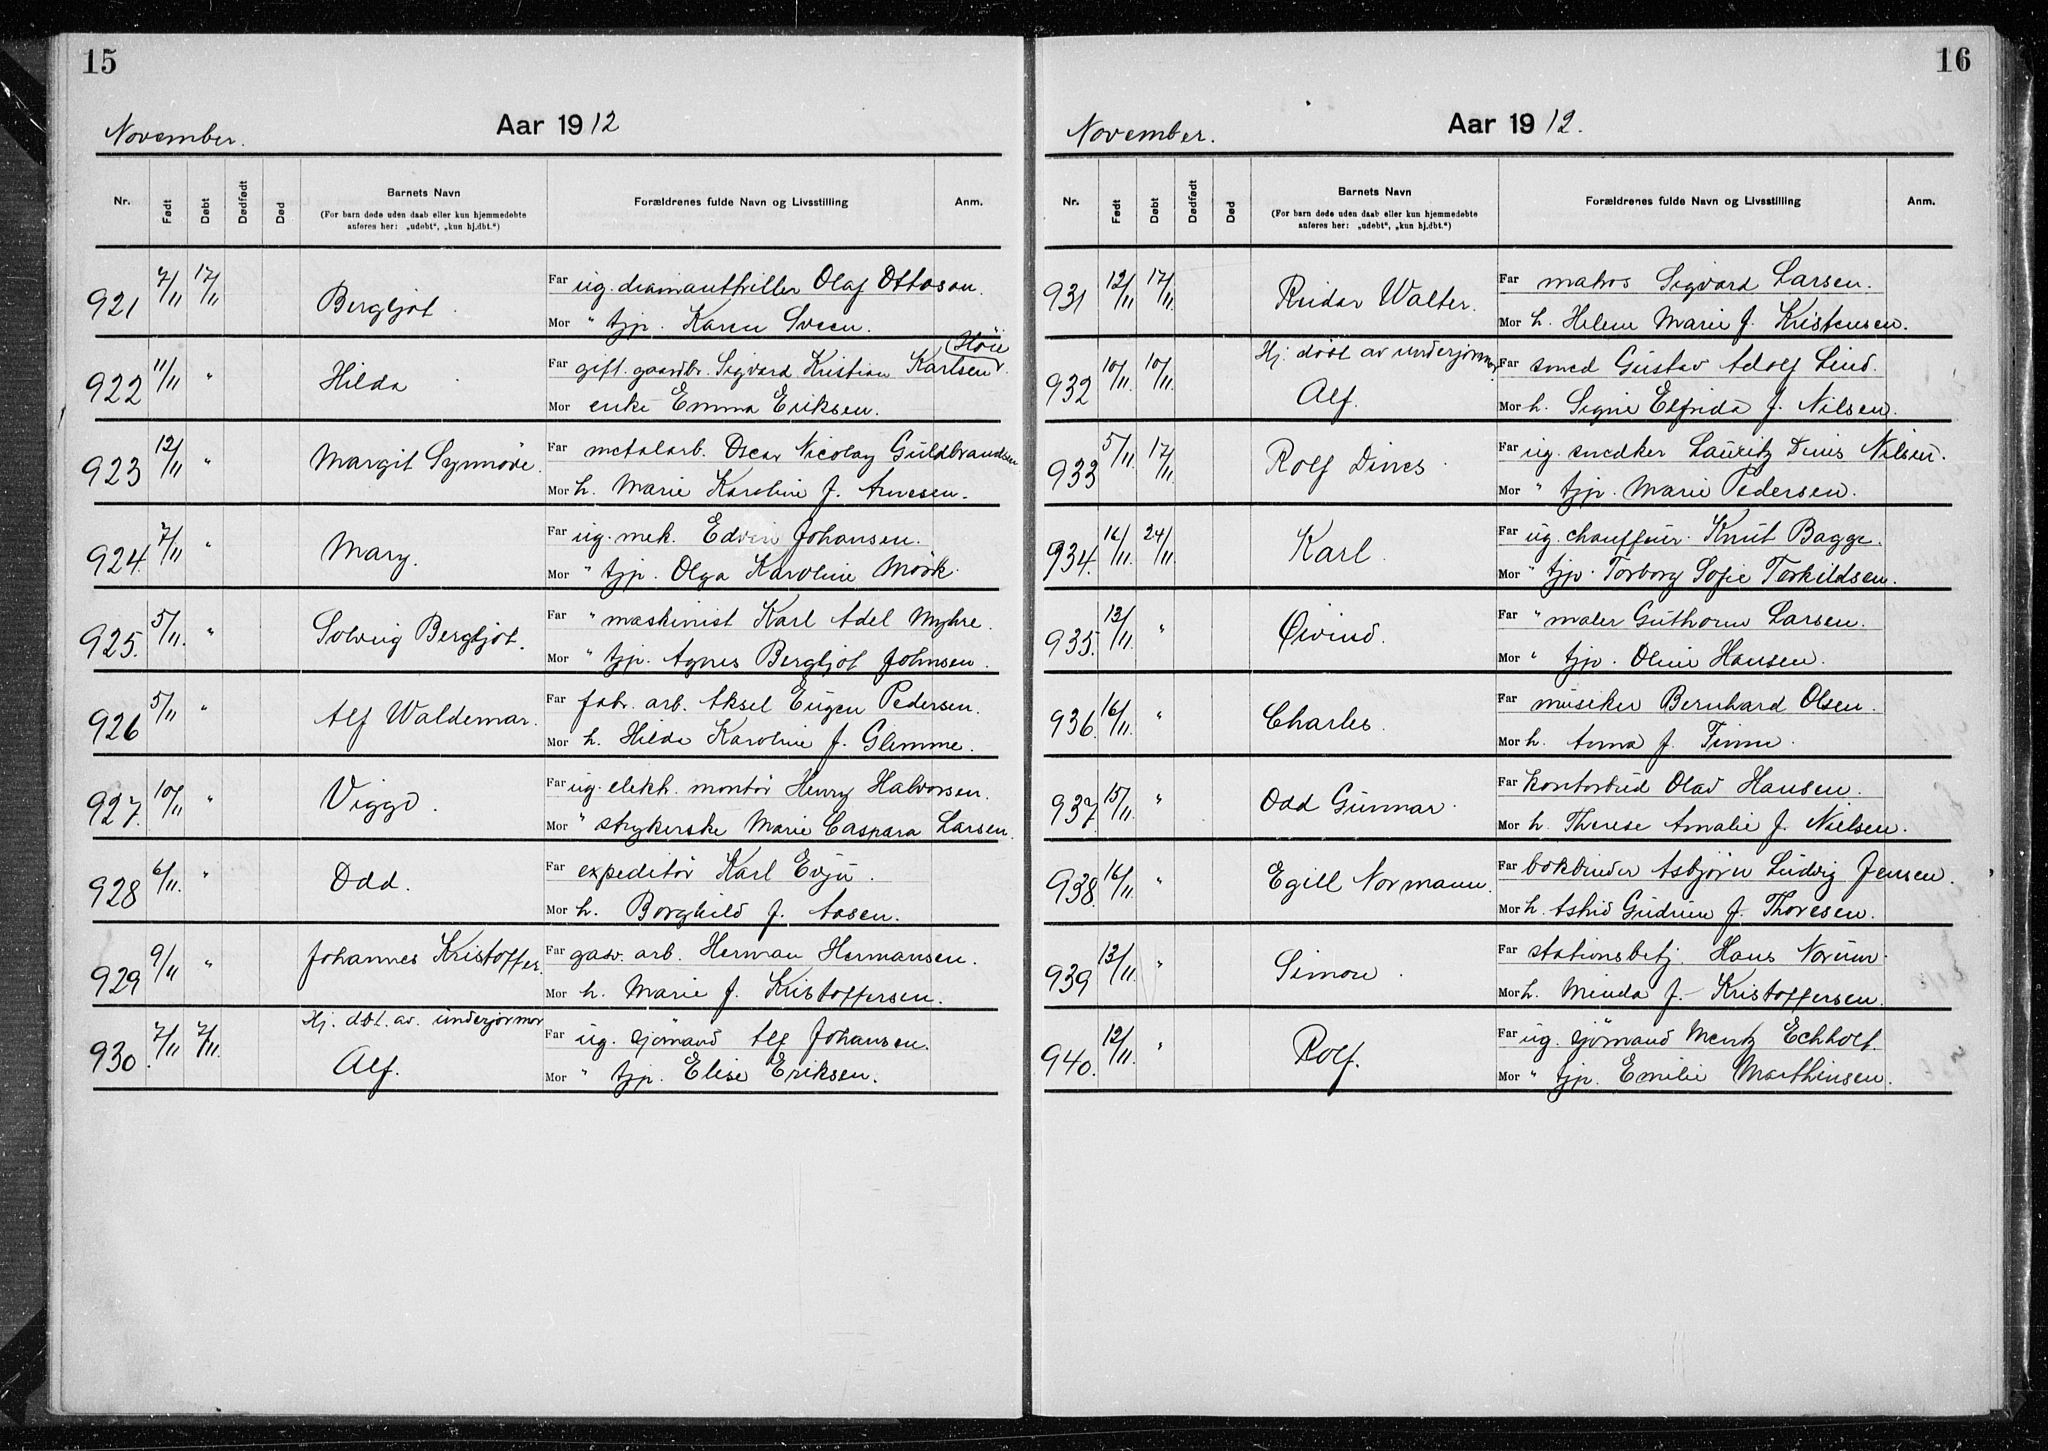 15
November.
Aar 1912
Nr.
Født
Døbt
Dødfødt
Død
Barnets Navn
(For barn døde uden daab eller kun hjemmedøbte
anføres her: „udøbt“, „kun hj.dbt.“)
Forældrenes fulde Navn og Livsstilling
Anm.
921 7/11 17/11 Bergljot.
Far ug. diamantdriller Olaf Ottosen.
Mor " tjp. Karen Sveen.
Höie
922 11/11 " Hilda
Far gift. gaardbr. Sigvard Kristian Karlsen
Mor enke Emma Eriksen.
923 12/11 " Margit Synnöve.
Far metalarb. Oscar Nicolay Guldbrandsen
Mor h. Marie Karoline f. Arnesen.
924. 7/11 " Mary.
Far ug. mek. Edvin Johansen.
Mor " tjp. Olga Karoline Mörk.
925. 5/11. " Solveig Bergljot.
Far " maskinist Karl Adel Myhre.
Mor " tjp. Agnes Bergljot Johnsen.
926 5/11 " Alf Waldemar.
Far fabr. arb. Aksel Eugen Pedersen.
Mor h. Hilda Karoline f. Glemme.
927. 10/11 " Viggo.
Far ug. elektr. montör Henry Halvorsen.
Mor " strykerske Marie Caspara Larsen.
928 6/11. " Odd.
Far expeditör Karl Evju.
Mor h. Borghild f. Aasen.
929 9/11 " Johannes Kristoffer.
Far gasv. arb. Herman Hermansen.
Mor h. Marie f. Kristoffersen.
Hj. dbt. av. underjormor
930. 7/11 7/11. Alf.
Far ug. sjömand Alf Johansen.
Mor " tjp. Elise Eriksen.
16
November.
Aar 1912.
Nr.
Født
Døbt
Dødfødt
Død
Barnets Navn
(For barn døde uden daab eller kun hjemmedøbte
anføres her: „udøbt“, „kun hj.dbt.“)
Forældrenes fulde Navn og Livsstilling
Anm.
931 12/11 17/11 Reidar Walter.
Far matros Sigvard Larsen.
Mor h. Helene Marie f. Kristensen.
Hj. döbt av underjormor.
932 10/11 10/11. Alf.
Far smed Gustav Adolf Lind.
Mor h. Signe Elfrida f. Nilsen.
933 5/11. 17/11 Rolf Dines.
Far ug. snedker Lauritz Dines Nilsen.
Mor " tjp. Marie Pedersen.
934. 16/11. 24/11 Karl.
Far ug. chauffeur. Knut Bagge.
Mor " tjp. Torborg Sofie Terkildsen.
935. 13/11. " Øivind.
Far " maler Guthorm Larsen.
Mor " tjp. Oline Hansen.
936. 16/11. " Charles.
Far musiker Bernhard Olsen.
Mor h. Anna f. Finne.
937. 15/11. " Odd Gunnar.
Far kontorbud Olav Hansen.
Mor h. Therese Amalie f. Nielsen.
938. 16/11. " Egill Normann.
Far bokbinder Asbjörn Ludvig Jensen.
Mor h. Astrid Gudrun f. Thoresen.
939 13/11. " Simon.
Far stationsbetj. Hans Norum.
Mor h. Minda f. Kristoffersen.
940. 12/11. " Rolf.
Far ug. sjömand Mentz Echholt.
Mor " tjp. Emilie Marthinsen.